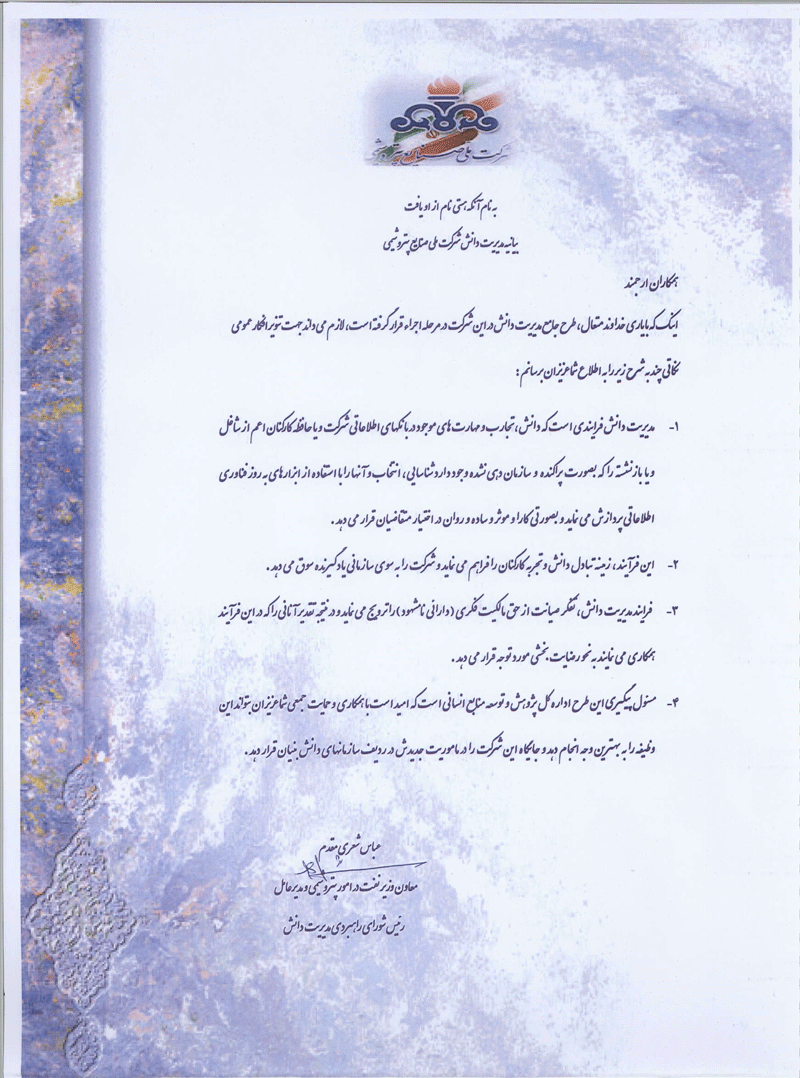 شرکت ملی صنایع پتروشیمی
به نام آنکه هستی نام از او یافت
بیانیه مدیریت دانش شرکت ملی صنایع پتروشیمی
همکاران ارجمند
اینک که با یاری خداوند متعال، طرح جامع مدیریت دانش در این شرکت در مرحله اجراء قرار گرفته است، لازم می داند جهت تنویر افکار عمومی
نکاتی چند به شرح زیر را به اطلاع شما عزیزان برسانم:
۱- مدیریت دانش فرایندی است که دانش، تجارب و مهارت های موجود در بانکهای اطلاعاتی شرکت و یا حافظه کارکنان اعم از شاغل
و یا بازنشسته را که بصورت پراکنده و سازمان دهی نشده وجود دارد شناسایی، انتخاب و آنها را با استفاده از ابزارهای به روز فناوری
اطلاعاتی پردازش می نماید و بصورتی کارا و موثر و ساده و روان در اختیار متقاضیان قرار می دهد.
۲- این فرآیند، زمینه تبادل دانش و تجربه کارکنان را فراهم می نماید و شرکت را به سوی سازمانی یادگیرنده سوق می دهد.
۳- فرایند مدیریت دانش، تفکر صیانت از حق مالکیت فکری (دارائی نامشهود) را ترویج می نماید و در نتیجه تقدیر آنانی را که در این فرآیند
همکاری می نمایند به نحو رضایت بخشی مورد توجه قرار می دهد.
۴- مسئول پیگیری این طرح اداره کل پژوهش و توسعه منابع انسانی است که امید است با همکاری و حمایت جمعی شما عزیزان بتواند این
وظیفه را به بهترین وجه انجام دهد و جایگاه این شرکت را در ماموریت جدیدش در ردیف سازمانهای دانش بنیان قرار دهد.
عباس شعری مقدم
معاون وزیر نفت در امور پتروشیمی و مدیرعامل
رئیس شورای راهبردی مدیریت دانش